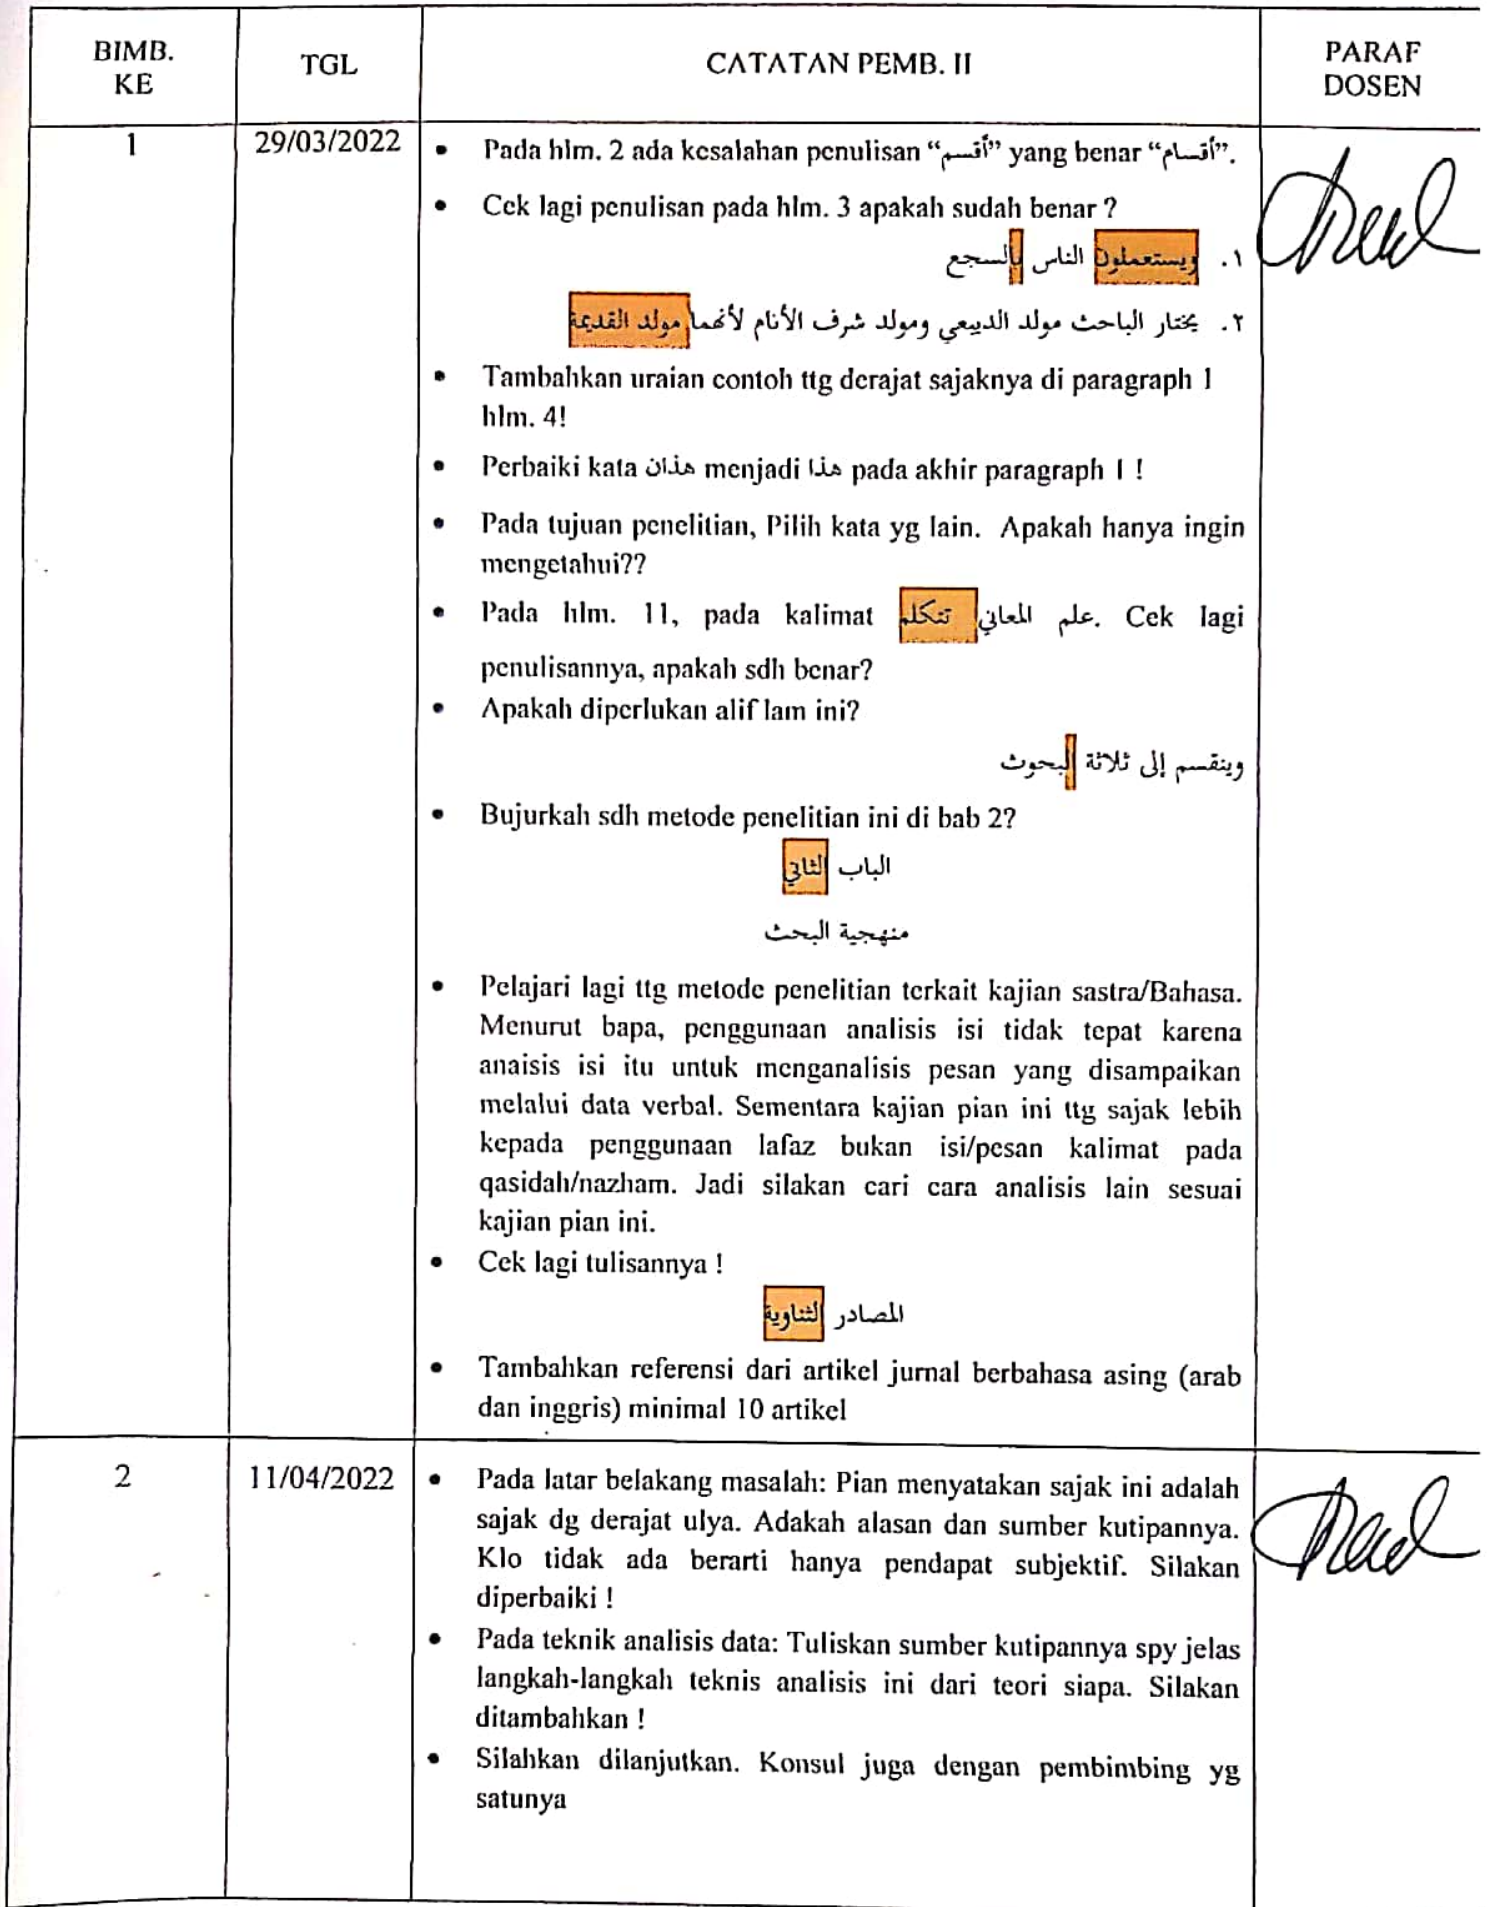 BIMB. KE
TGL
CATATAN PEMB. II
PARAF DOSEN
1
29/03/2022
• Pada hlm. 2 ada kesalahan penulisan “أقسم” yang benar “أقسام”.
• Cek lagi penulisan pada hlm. 3 apakah sudah benar ?
١. ويستعملون الناس بالسجع
٢. يختار الباحث مولد الديبعي ومولد شرف الأنام لأنهما مولد القديمة
• Tambahkan uraian contoh ttg derajat sajaknya di paragraph 1
hlm. 4!
• Perbaiki kata هذان menjadi هذا pada akhir paragraph 1 !
• Pada tujuan penelitian, Pilih kata yg lain. Apakah hanya ingin
mengetahui??
• Pada hlm. 11, pada kalimat علم المعاني تتكلم. Cek lagi
penulisannya, apakah sdh benar?
• Apakah diperlukan alif lam ini?
وينقسم إلى ثلاثة البحوث
• Bujurkah sdh metode penelitian ini di bab 2?
الباب الثاني
منهجية البحث
• Pelajari lagi ttg metode penelitian terkait kajian sastra/Bahasa.
Menurut bapa, penggunaan analisis isi tidak tepat karena
anaisis isi itu untuk menganalisis pesan yang disampaikan
melalui data verbal. Sementara kajian pian ini ttg sajak lebih
kepada penggunaan lafaz bukan isi/pesan kalimat pada
qasidah/nazham. Jadi silakan cari cara analisis lain sesuai
kajian pian ini.
• Cek lagi tulisannya !
المصادر الثناوية
• Tambahkan referensi dari artikel jurnal berbahasa asing (arab
dan inggris) minimal 10 artikel
2
11/04/2022
• Pada latar belakang masalah: Pian menyatakan sajak ini adalah
sajak dg derajat ulya. Adakah alasan dan sumber kutipannya.
Klo tidak ada berarti hanya pendapat subjektif. Silakan
diperbaiki !
• Pada teknik analisis data: Tuliskan sumber kutipannya spy jelas
langkah-langkah teknis analisis ini dari teori siapa. Silakan
ditambahkan !
• Silahkan dilanjutkan. Konsul juga dengan pembimbing yg
satunya